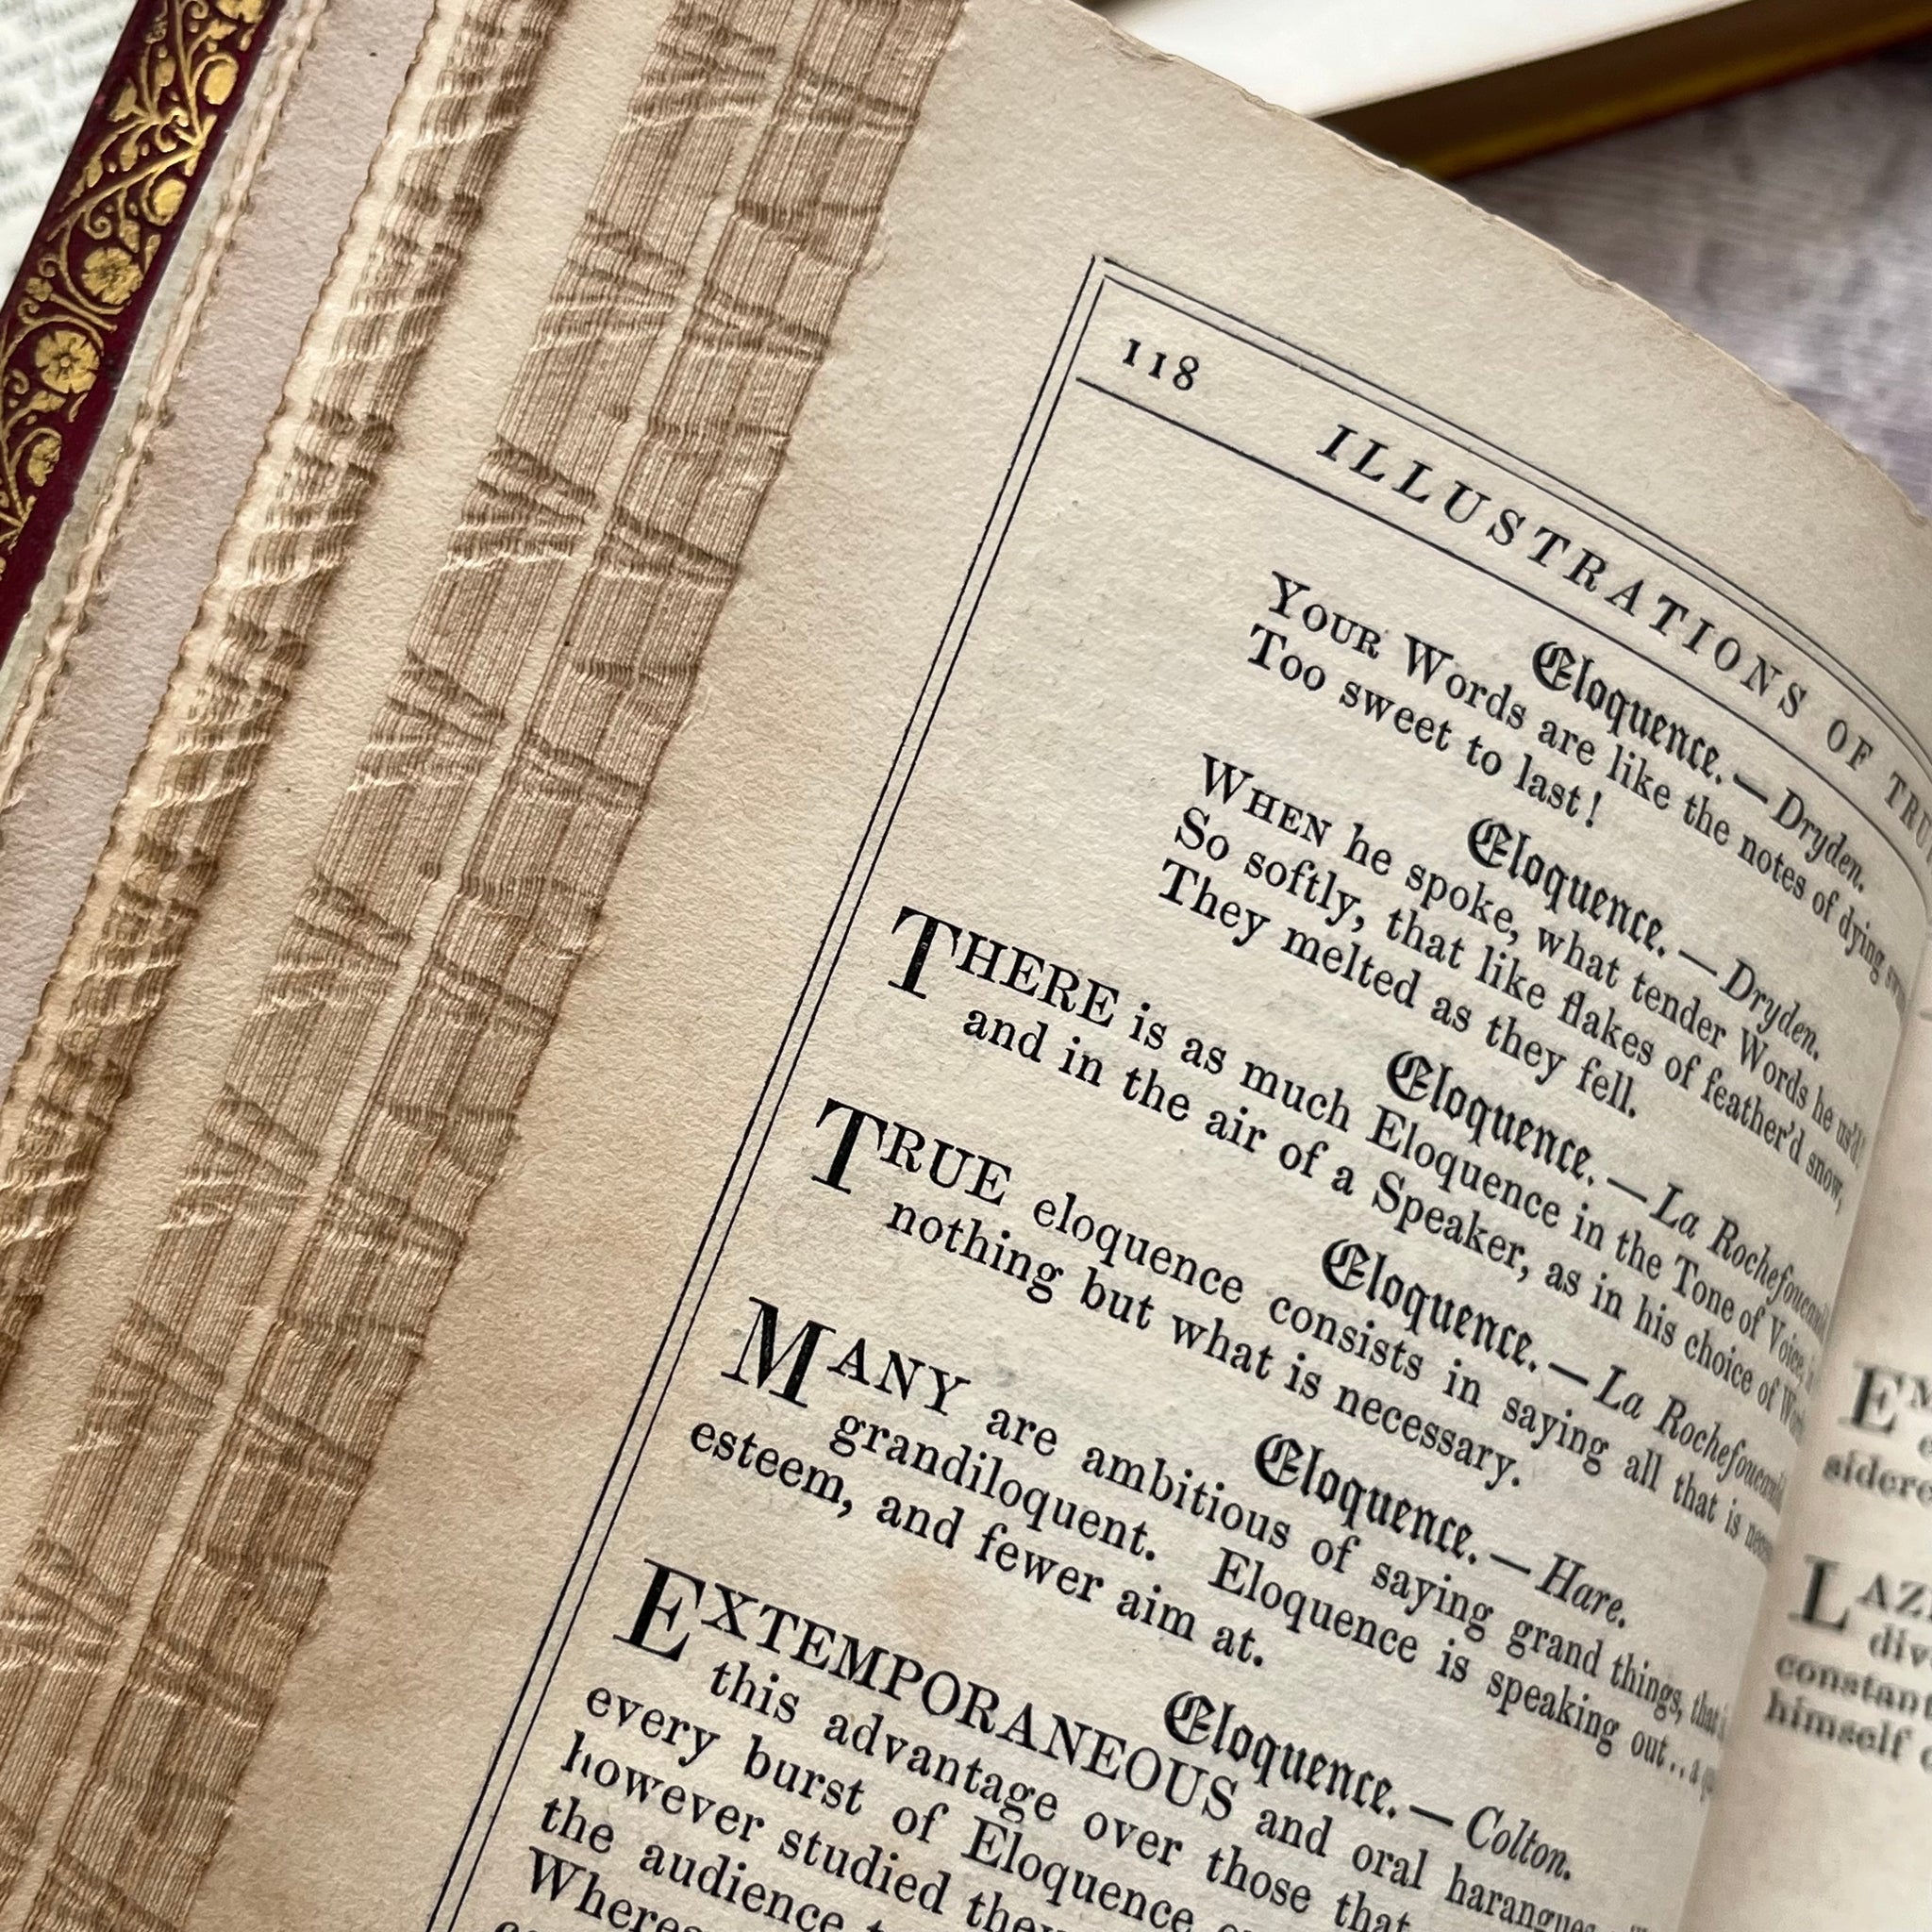 118 ILLUSTRATIONS OF
Eloquence.—Dryden.
YOUR Words are like the notes of dying
Too sweet to last!
Eloquence.—Dryden.
WHEN he spoke, what tender Words he us'd!
So softly, that like flakes of feather'd snow,
They melted as they fell.
Eloquence.—La Rochefoucauld
THERE is as much Eloquence in the Tone of Voice,
and in the air of a Speaker, as in his choice of
Eloquence.—La Rochefoucauld
TRUE eloquence consists in saying all that is
nothing but what is necessary.
Eloquence.—Hare.
MANY are ambitious of saying grand things, that
grandiloquent. Eloquence is speaking out..a
esteem, and fewer aim at.
Eloquence.—Colton.
EXTEMPORANEOUS and oral harangues
this advantage over those that
every burst of Eloquence
however studied they
the audience
sidere
LAZ
div
constan
himself